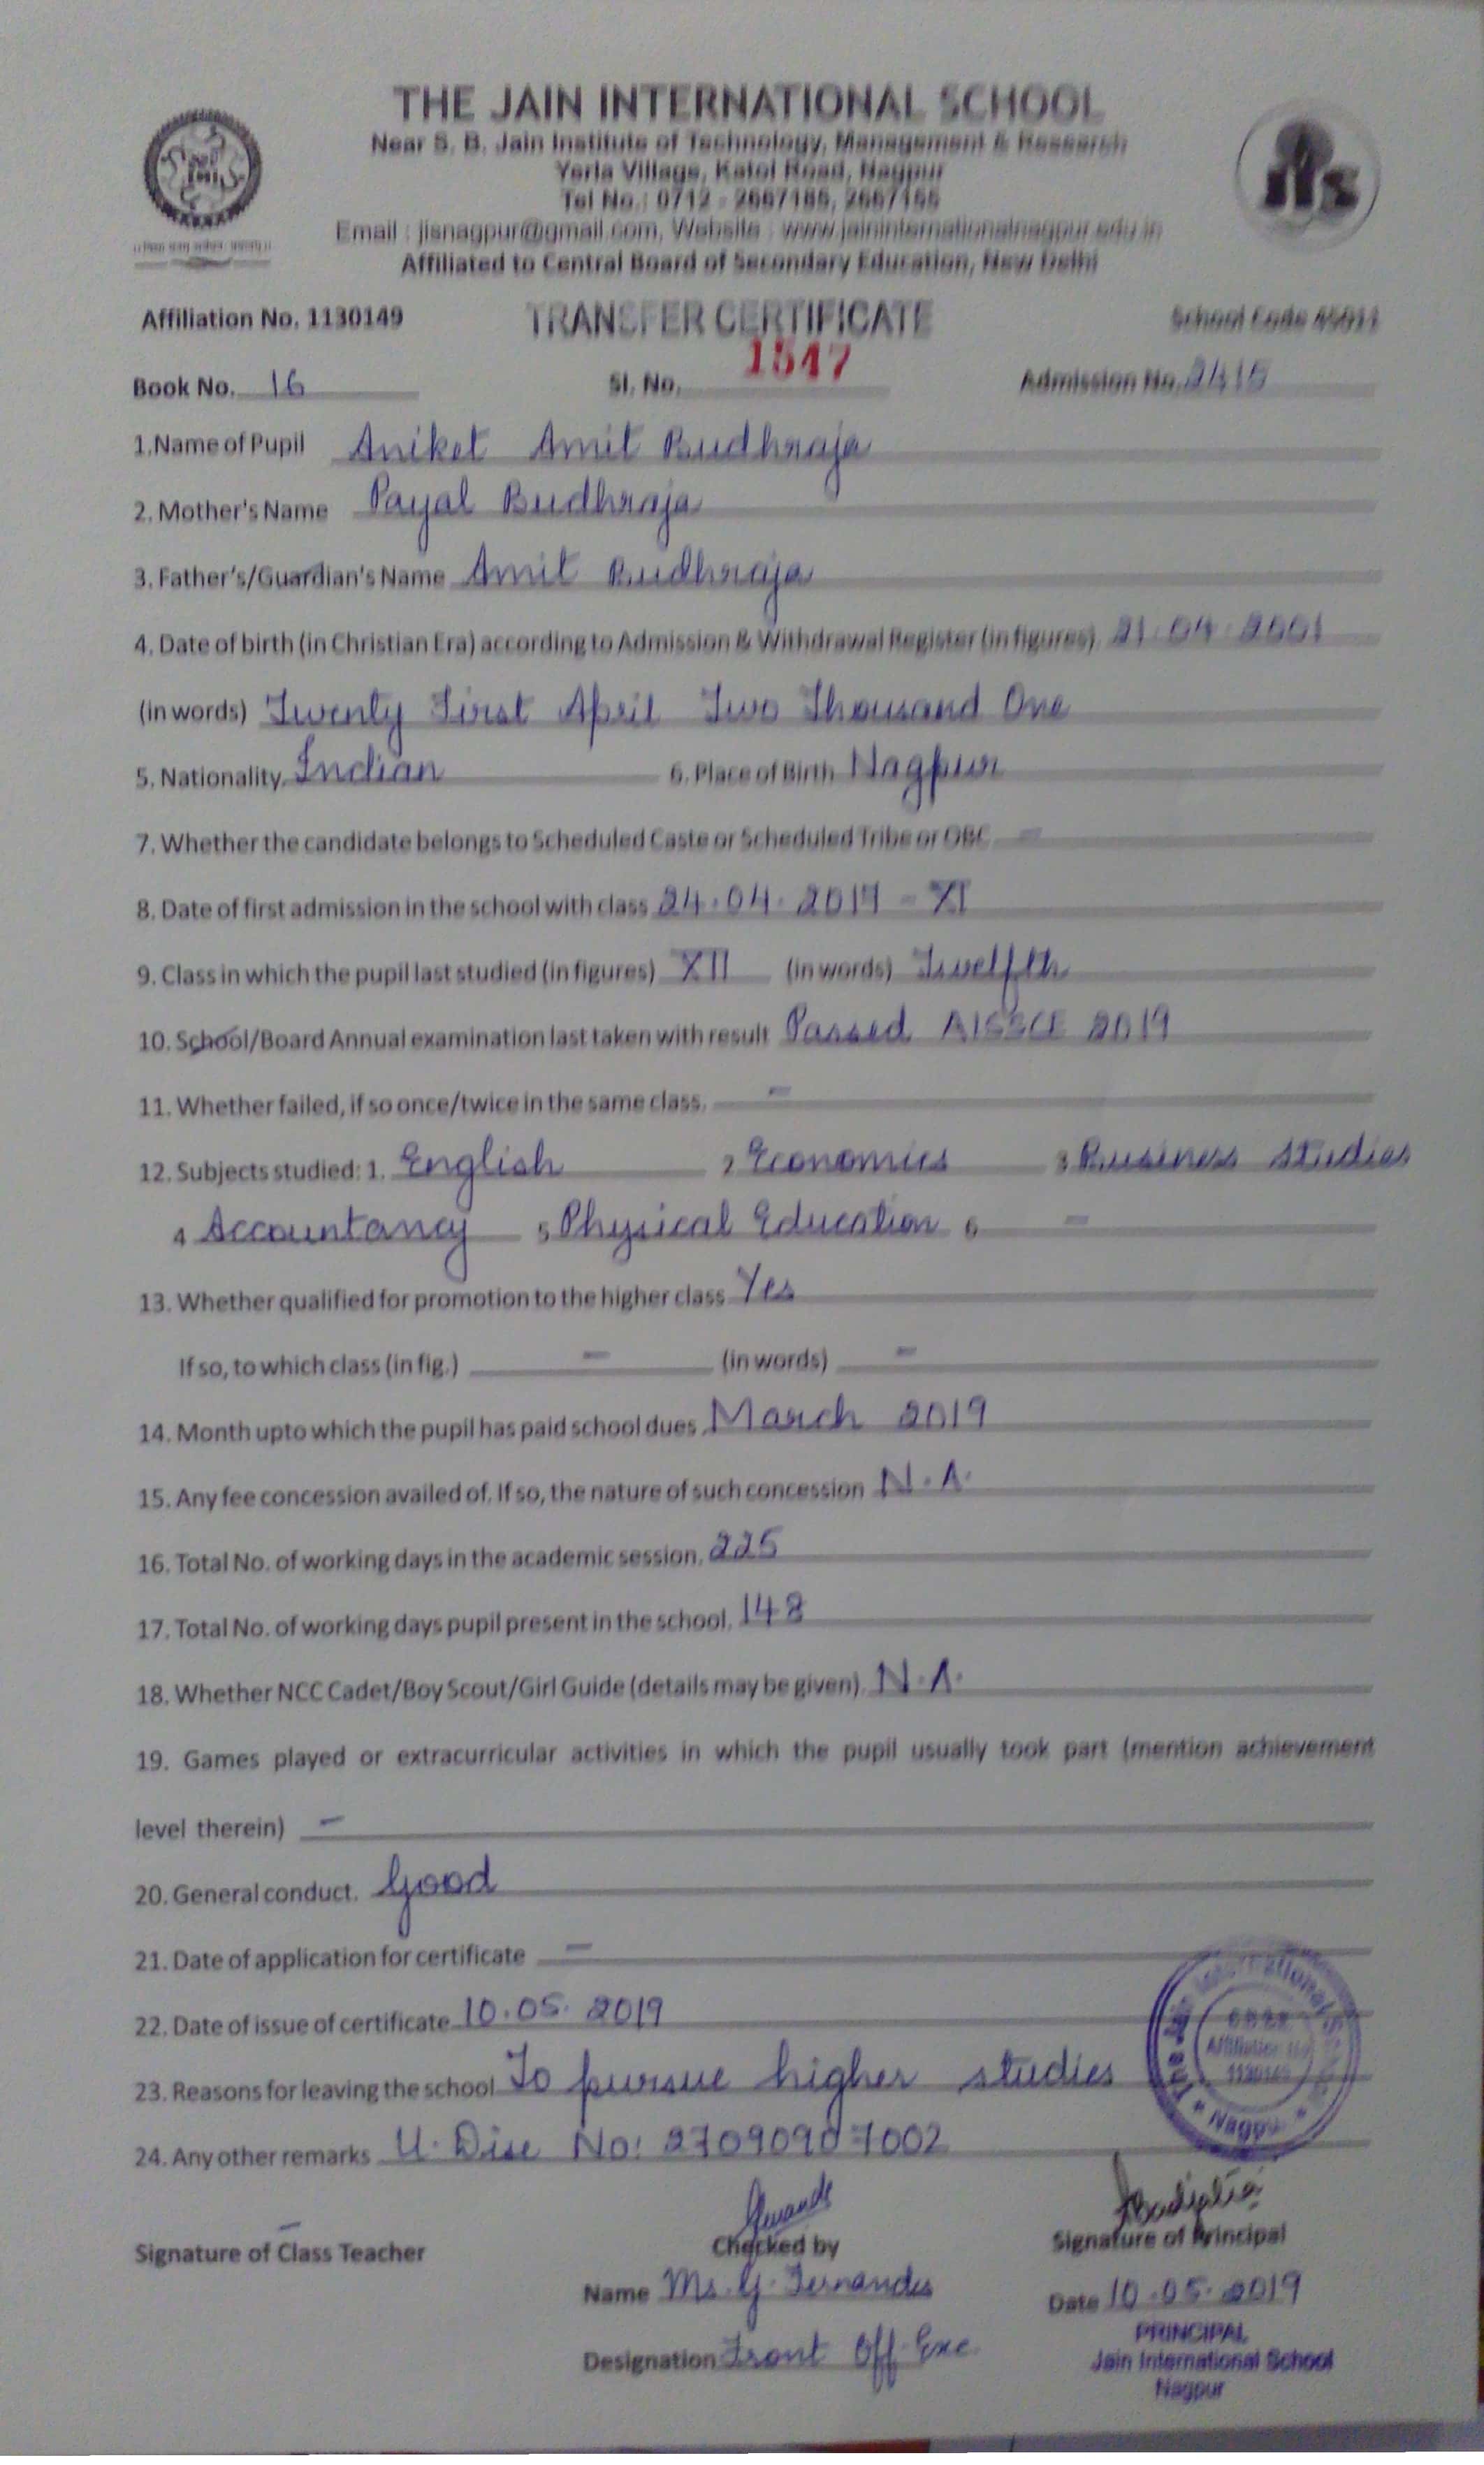 THE JAIN INTERNATIONAL SCHOOL
Near S. B. Jain Institute of Technology, Management & Research
Yerla Village, Katol Road, Nagpur
Tel No.: 0712 - 2667185, 2667155
Email : jisnagpur@gmail.com, Website : www.jaininternationalnagpur.edu.in
Affiliated to Central Board of Secondary Education, New Delhi
Affiliation No. 1130149 TRANSFER CERTIFICATE School Code
Book No. 16 Sl. No. 1547 Admission No. 2415
1.Name of Pupil Aniket Amit Budhraja
2. Mother's Name Payal Budhraja
3. Father's/Guardian's Name Amit Budhraja
4. Date of birth (in Christian Era) according to Admission & Withdrawal Register (in figures) 21.04.2001
(in words) Twenty First April Two Thousand One
5. Nationality Indian 6. Place of Birth Nagpur
7. Whether the candidate belongs to Scheduled Caste or Scheduled Tribe or OBC -
8. Date of first admission in the school with class 24.04.2017 - XI
9. Class in which the pupil last studied (in figures) XII (in words) Twelfth
10. School/Board Annual examination last taken with result Passed AISSCE 2019
11. Whether failed, if so once/twice in the same class. -
12. Subjects studied: 1. English 2 Economics 3 Business Studies
4 Accountancy 5 Physical Education 6 -
13. Whether qualified for promotion to the higher class Yes
If so, to which class (in fig.) - (in words) -
14. Month upto which the pupil has paid school dues March 2019
15. Any fee concession availed of. If so, the nature of such concession N.A.
16. Total No. of working days in the academic session. 225
17. Total No. of working days pupil present in the school. 148
18. Whether NCC Cadet/Boy Scout/Girl Guide (details may be given) N.A.
19. Games played or extracurricular activities in which the pupil usually took part (mention achievement
level therein) -
20. General conduct. Good
21. Date of application for certificate -
22. Date of issue of certificate 10.05.2019
23. Reasons for leaving the school To pursue higher studies
24. Any other remarks U.Dise No: 27090907002
Affiliation No
1130149
Nagpur
Signature of Class Teacher - Checked by Signature of Principal
Name Ms. G. Fernandes Date 10.05.2019
Designation Front Off. Exe.
PRINCIPAL
Jain International School
Nagpur